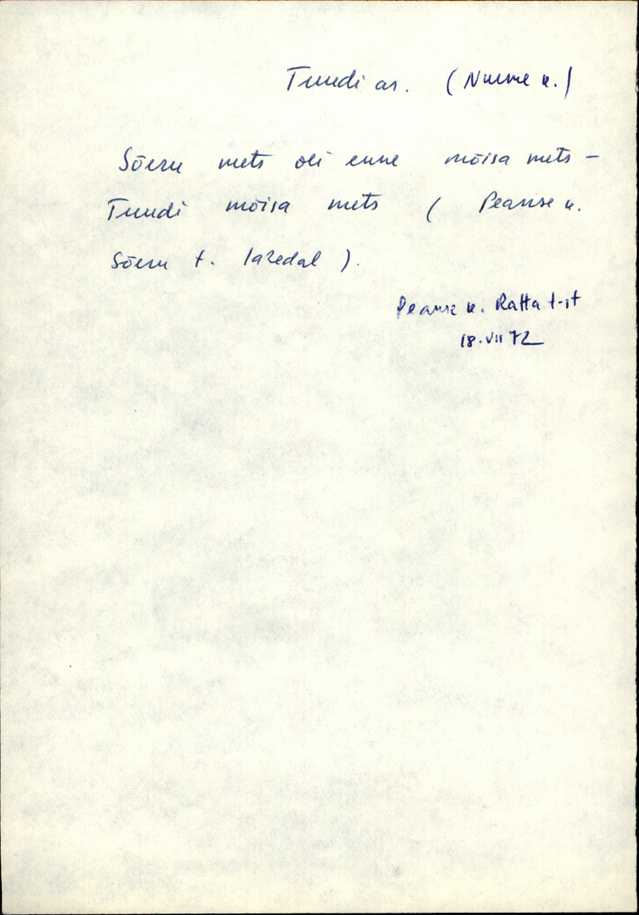 Tuudi as. (Nurme k.)
Sõeru mets oli enne mõisa mets –
Tuudi mõisa mets ( Peanse k.
Sõeru t. lähedal ).
Peanse k. Ratta t-st
18.VII 72